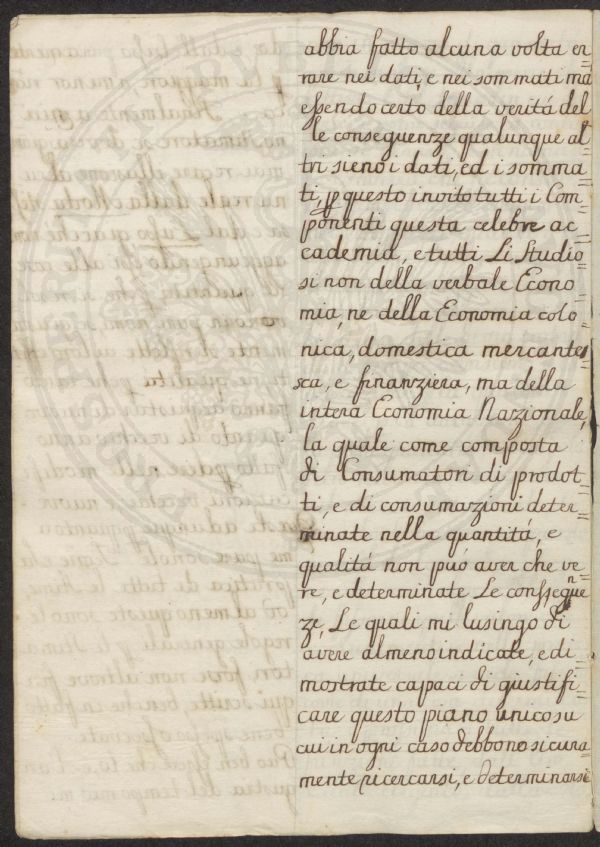 abbia fatto alcuna volta er=
rare nei dati, e nei sommati ma
essendo certo della veritá del=
le conseguenze qualunque al=
tri sieno i dati, ed i somma=
ti, p questo invito tutti i Com=
ponenti questa celebre ac=
cademia, e tutti Li Studio=
si non della verbale Econo=
mia, ne della Economia colo=
nica, domestica mercante=
sca, e finanziera, ma della
intera Economia Nazionale,
la quale come composta
di Consumatori di prodot=
ti, e di consumazioni deter=
minate nella quantitá, e
qualitá non puó aver che ve=
re, e determinate Le conseguen=
ze, Le quali mi lusingo di
avere almeno indicate, e di=
mostrate capaci di giustifi=
care questo piano unico su
cui in ogni caso debbono sicura=
mente ricercarsi, e determinarsi